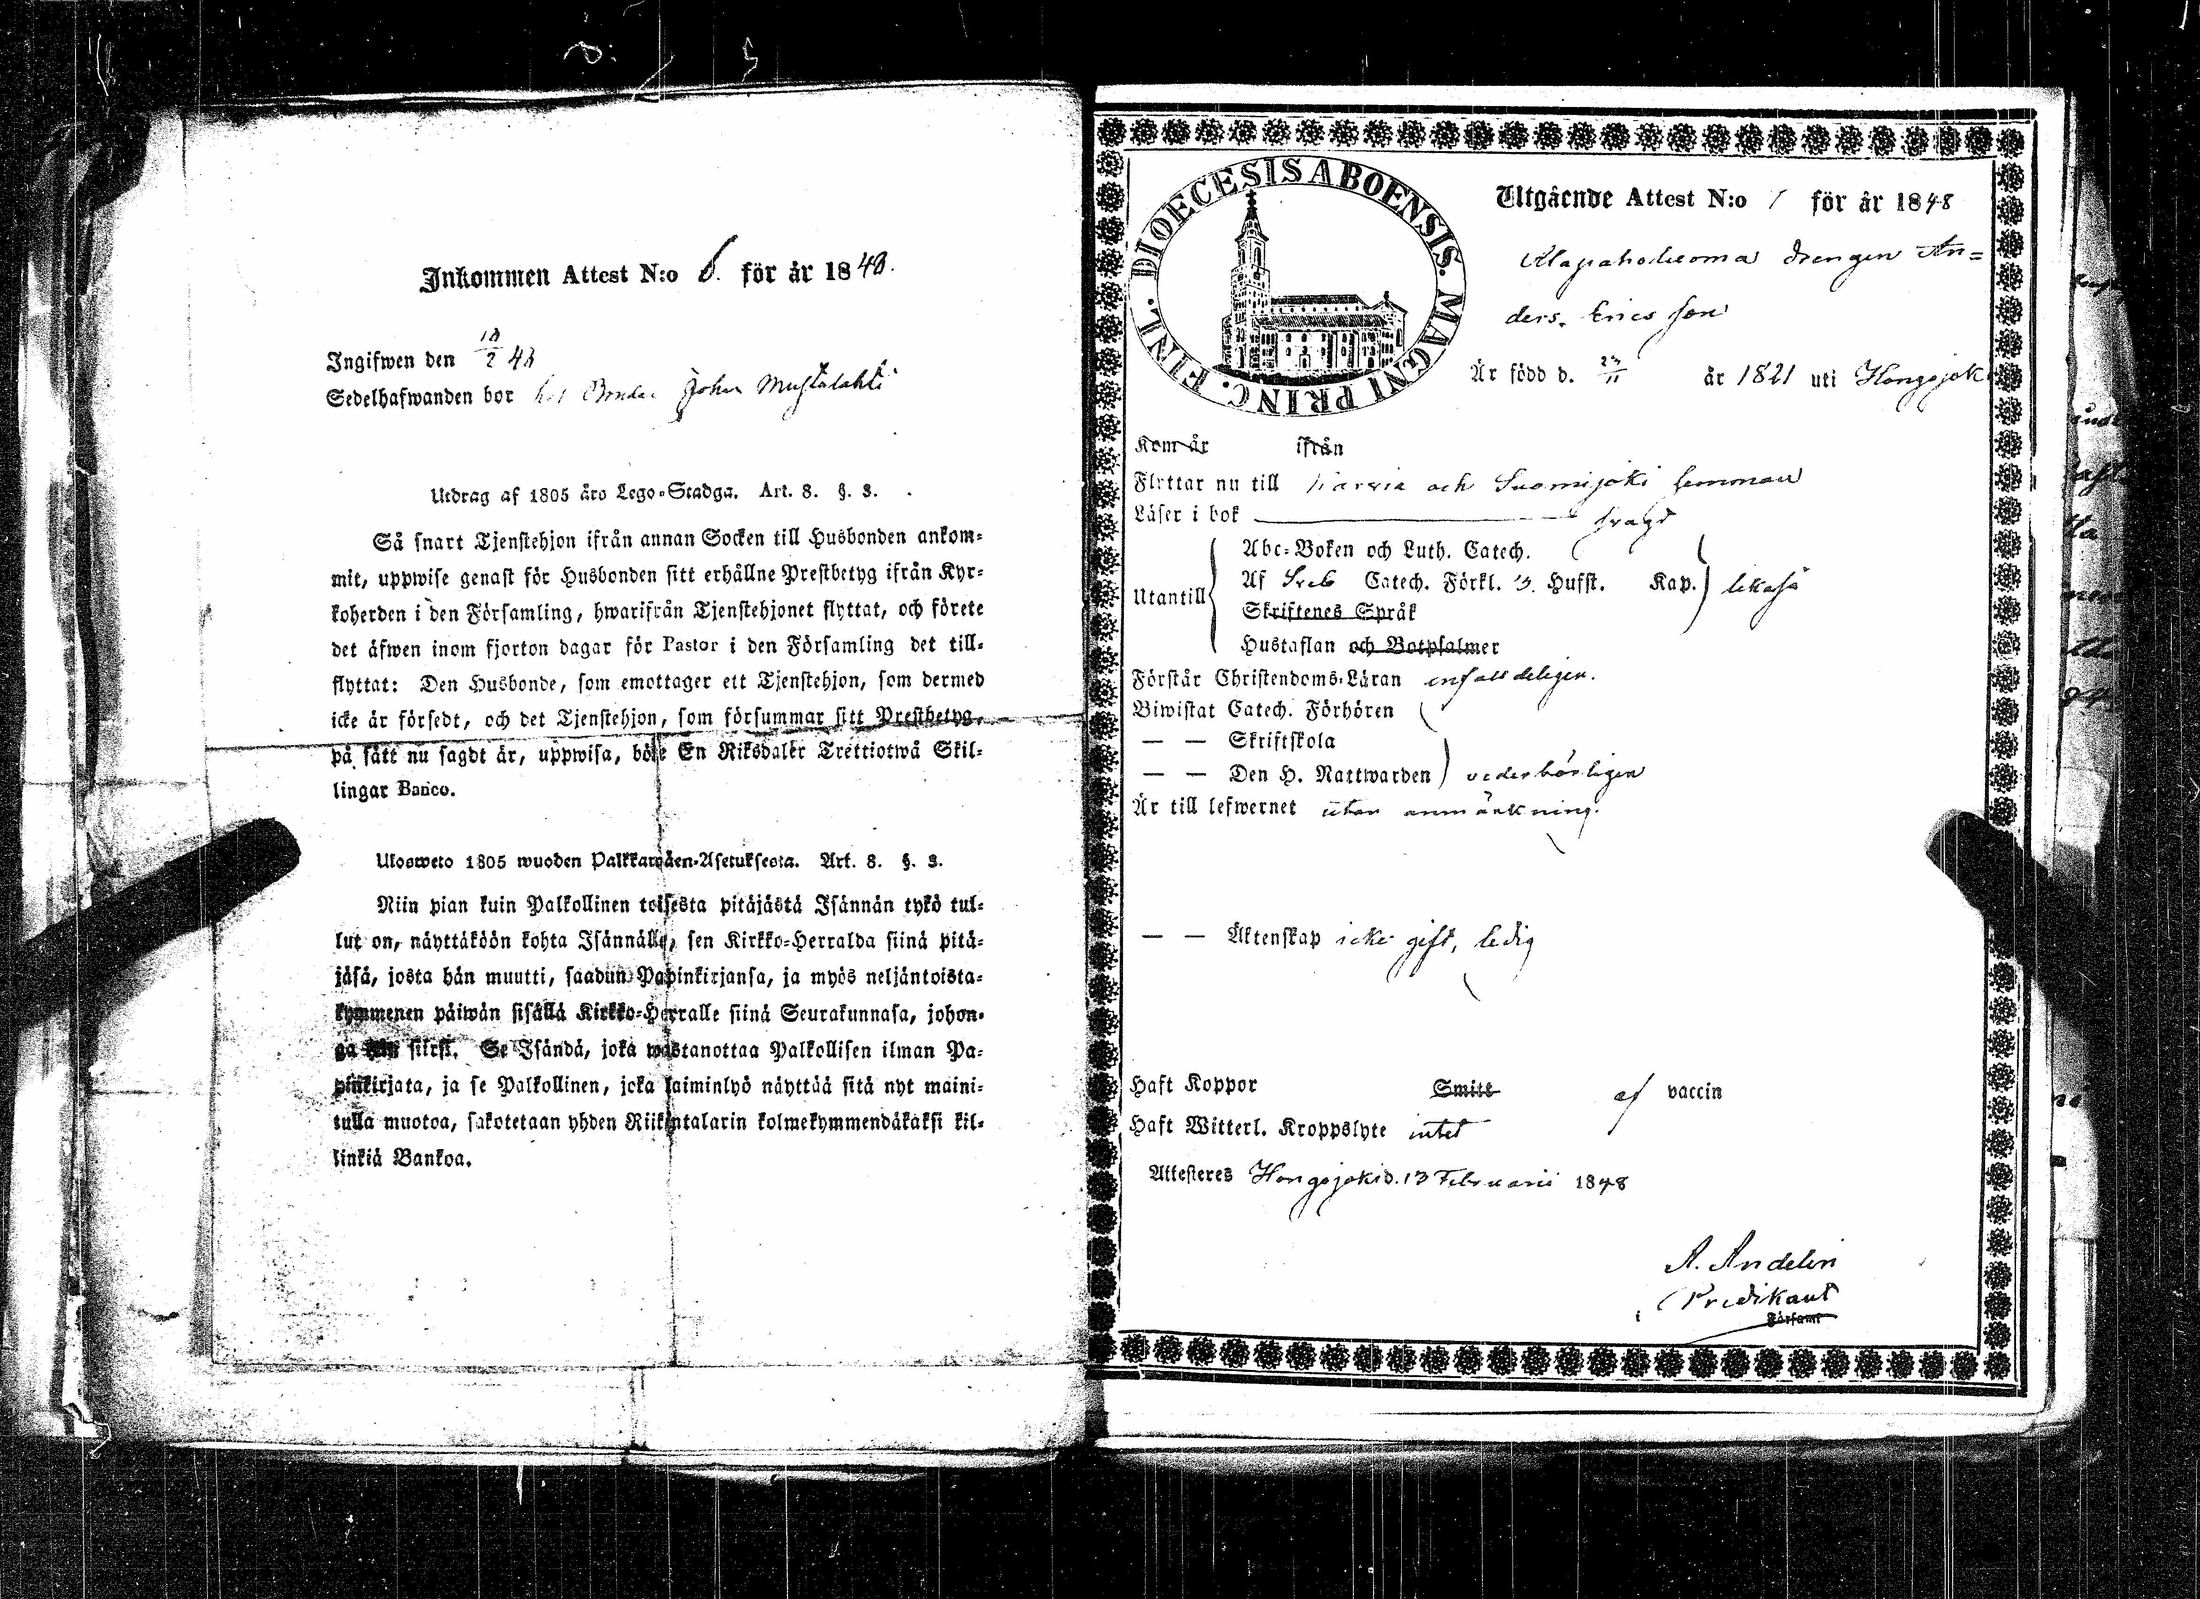 Inkommen Attest N:o 6. för år 1848.
Ingifwen den 18/2 48
Sedelhafwanden bor hos Bonden Johan Mustalahti
Utdrag af 1805 års Lego-Stadga. Art. 8. §. 3.
Så snart Tjenstehjon ifrån annan Socken till Husbonden ankom-
mit, uppwise genast för Husbonden sitt erhållne Prestbetyg ifrån Kyr-
koherden i den Församling, hwarifrån Tjenstehjonet flyttat, och förete
det äfwen inom fjorton dagar för Pastor i den Församling det till-
flyttat: Den Husbonde, som emottager ett Tjenstehjon, som dermed
icke är försedt, och det Tjenstehjon, som försummar sitt Prestbetyg,
på sätt nu sagdt är, uppwisa, böte En Riksdaler Trettiotwå Skil-
lingar Banco.
Ulosweto 1805 wuoden Palkkawäen-Asetuksesta. Art. 8. §. 3.
Niin pian kuin Palkollinen toisesta pitäjästä Isännän tykö tul-
lut on, näyttäköön kohta Isännälle, sen Kirkko-Herralda siinä pitä-
jäsä, josta hän muutti, saadun Papinkirjansa, ja myös neljäntoista-
kymmenen päiwän sisällä Kirkko-Herralle siinä Seurakunnasa, johon-
ga hän siirsi. Se Isändä, joka wastanottaa Palkollisen ilman Pa-
pinkirjata, ja se Palkollinen, joka laiminlyö näyttää sitä nyt maini-
tulla muotoa, sakotetaan yhden Riikintalarin kolmekymmendäkaksi kil-
linkiä Bankoa.
DIOECESIS ABOENSIS. MAGNI PRINC. FINL.
Utgående Attest N:o 1 för år 1848
drengen An=
ders. Ericsson
Är född d. 23/11 år 1821 uti Hongojok
Kom år ifrån
Flyttar nu till och Suomijoki
Läser i bok svagt
Utantill
Abc-Boken och Luth. Catech.
Af Sveb Catech. Förkl. 3. Hufst. Kap. likaså
Skriftenes Språk
Hustaflan och Botpsalmer
Förstår Christendoms-Läran enfalldeligen.
Biwistat Catech. Förhören
— — Skriftskola
— — Den H. Nattwarden vederbörligen
Är till lefwernet utan anmärkning.
— — Äktenskap icke gift, ledig
Haft Koppor Smitt af vaccin
Haft Witterl. Kroppslyte intet
Attesteras Hongojoki d. 13 Februarii 1848
A. Andelin
Predikant
i Församl